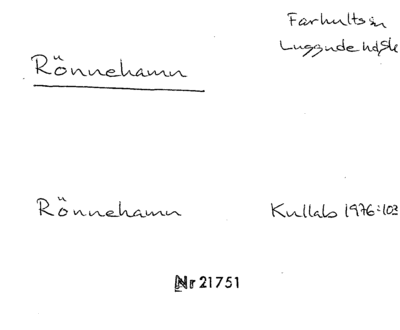 Farhults sn
Luggude hd, Sk
Rönnehamn
Rönnehamn Kullabs 1976:103
Nr 21751